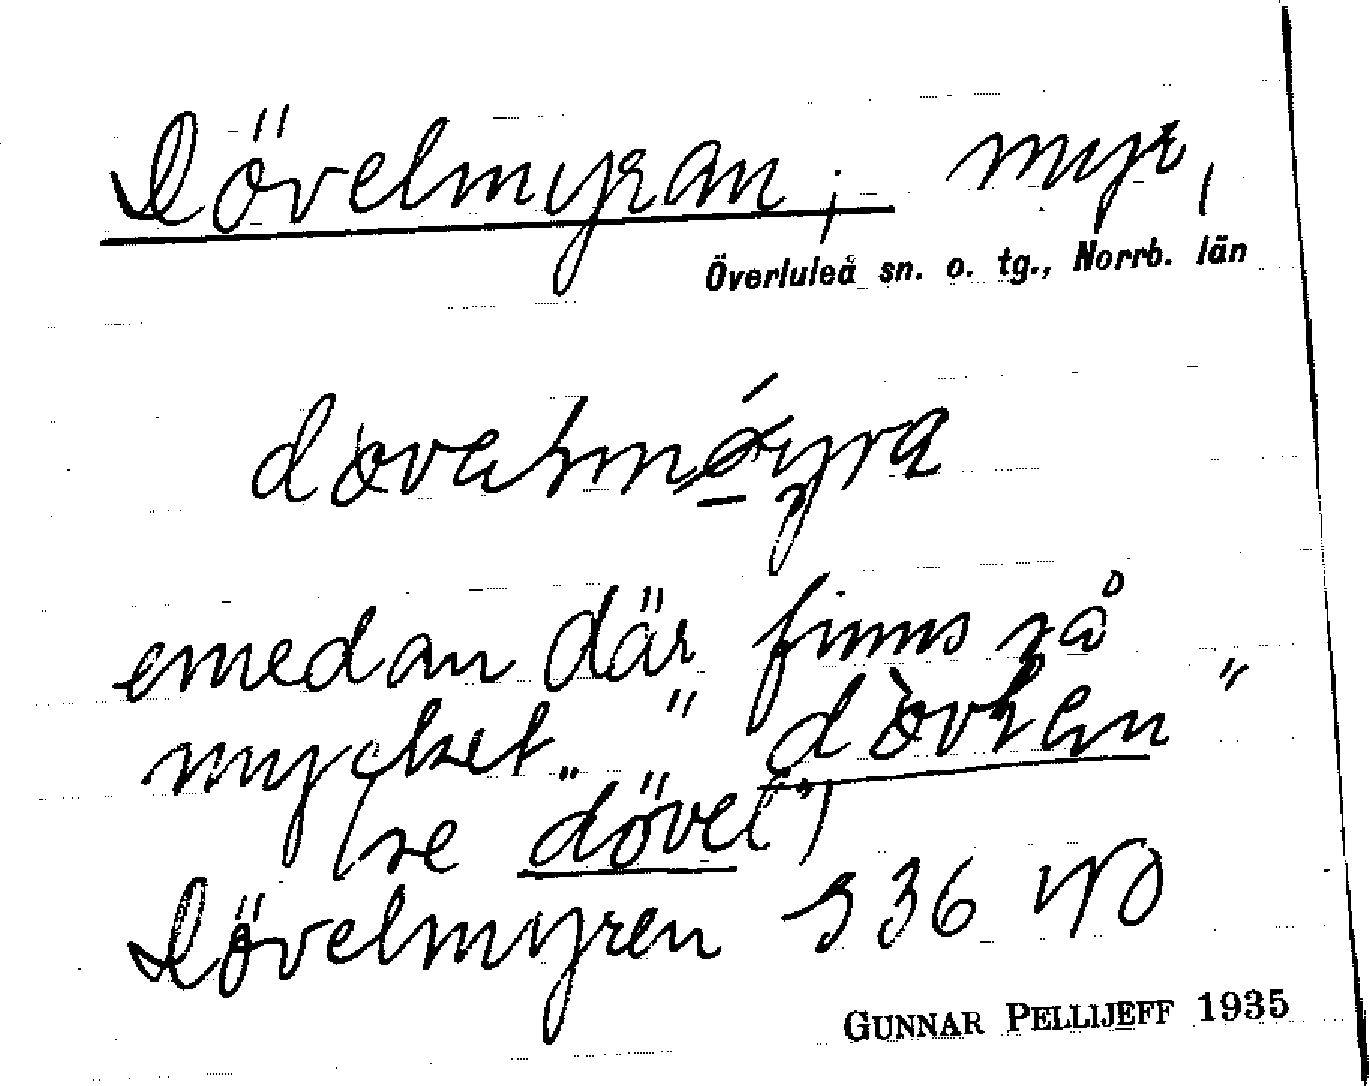 Dövelmyran, myr,
Överluleå sn. o. tg., Norrb. län
emedan där finns så
mycket
(se "dövel")
Dövelmyren S 36 NO
GUNNAR PELLIJEFF 1935